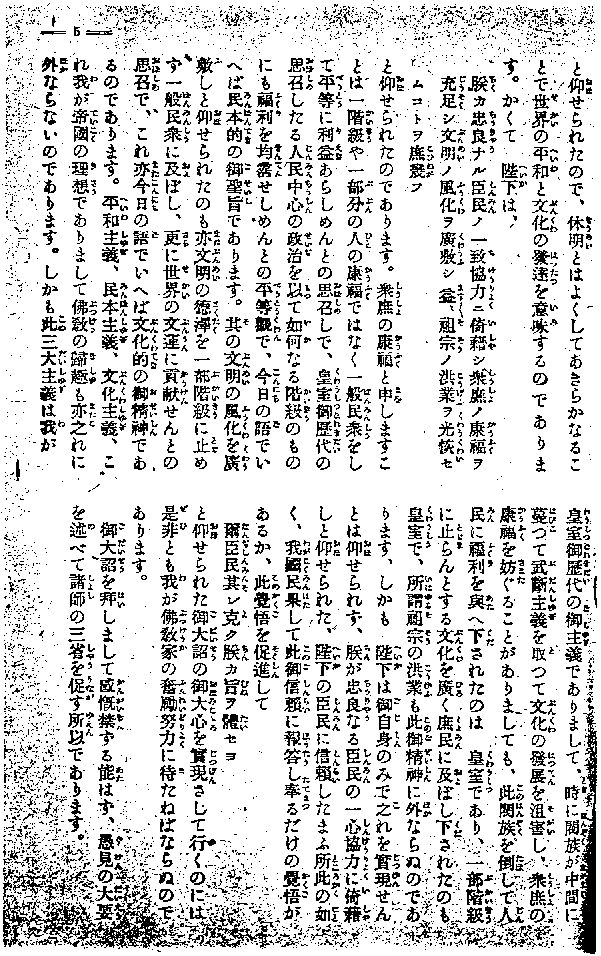 5
と仰せられたので、休明とはよくしてあきらかなるこ
とで世界の平和と文化の發達を意味するのでありま
す。かくて　陛下は、
朕カ忠良ナル臣民ノ一致協力ニ倚藉シ衆庶ノ康福ヲ
充足シ文明ノ風化ヲ廣敷シ益〻祖宗ノ洪業ヲ光恢セ
ムコトヲ庶幾フ
と仰せられたのであります。衆庶の康福と申しますこ
とは一階級や一部分の人の康福ではなく一般民衆をし
て平等に利益あらしめんとの思召しで、皇室御歷代の
思召したる人民中心の政治を以て如何なる階級のもの
にも福利を均霑せしめんとの平等觀で、今日の語でい
へば民本的の御聖旨であります。其の文明の風化を廣
敷しと仰せられたのも亦文明の德澤を一部階級に止め
す一般民衆に及ぼし、更に世界の文運に貢獻せんとの
思召で、これ亦今日の語でいへば文化的の御精神であ
るのであります。平和主義、民本主義、文化主義、こ
れ我が帝國の理想でありまして佛敎の歸趣も亦之れに
外ならないのであります。しかも此三大主義は我が
皇室御歷代の御主義でありまして、時に閥族が中間に
蔓つて武斷主義を取つて文化の發展を沮害し、衆庶の
康福を妨ぐることがありましても、此閥族を倒して人
民に福利を與へ下されたのは　皇室であり、一部階級
に止らんとする文化を廣く庶民に及ぼし下されたのも
皇室で、所謂祖宗の洪業も此御精神に外ならぬのであ
ります。しかも　陛下は御自身のみで之れを實現せん
とは仰せられす、朕が忠良なる臣民の一心協力に倚藉
しと仰せられた、陛下の臣民に信賴したまふ所此の如
く、我國民果して此御信賴に報答し奉るだけの覺悟が
あるか、此覺悟を促進して
爾臣民其レ克ク朕カ旨ヲ體セヨ
と仰せられた御大詔の御大心を實現させて行くのには
是非とも我が佛敎家の奮勵努力に待たねばならぬので
あります。
御大詔を拜しまして感慨禁する能はす、愚見の大要
を述べて諸師の三省を促す所以であります。